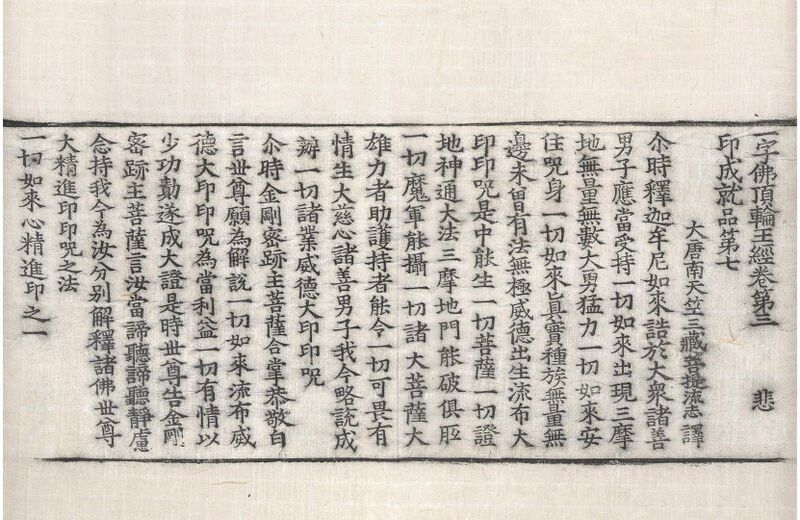 一字佛頂輪王經卷第三　悲
印成就品第七
大唐南天竺三藏菩提流志譯
尒時釋迦牟尼如來誥於大衆諸善
男子應當受持一切如來出現三摩
地無量無數大勇猛力一切如來安
住呪身一切如來眞實種族無量無
邊未曾有法無極威德出生流布大
印印呪是中能生一切菩薩一切證
地神通大法三摩地門能破俱胝
一切魔軍能攝一切諸大菩薩大
雄力者助護持者能令一切可畏有
情生大慈心諸善男子我今略說成
辦一切諸業威德大印印呪
尒時金剛密跡主菩薩合掌恭敬白
言世尊願為解說一切如來流布威
德大印印呪為當利益一切有情以
少功勳遂成大證是時世尊告金剛
密跡主菩薩言汝當諦聽諦聽靜慮
念持我今為汝分别解釋諸佛世尊
大精進印印呪之法
一切如來心精進印之一